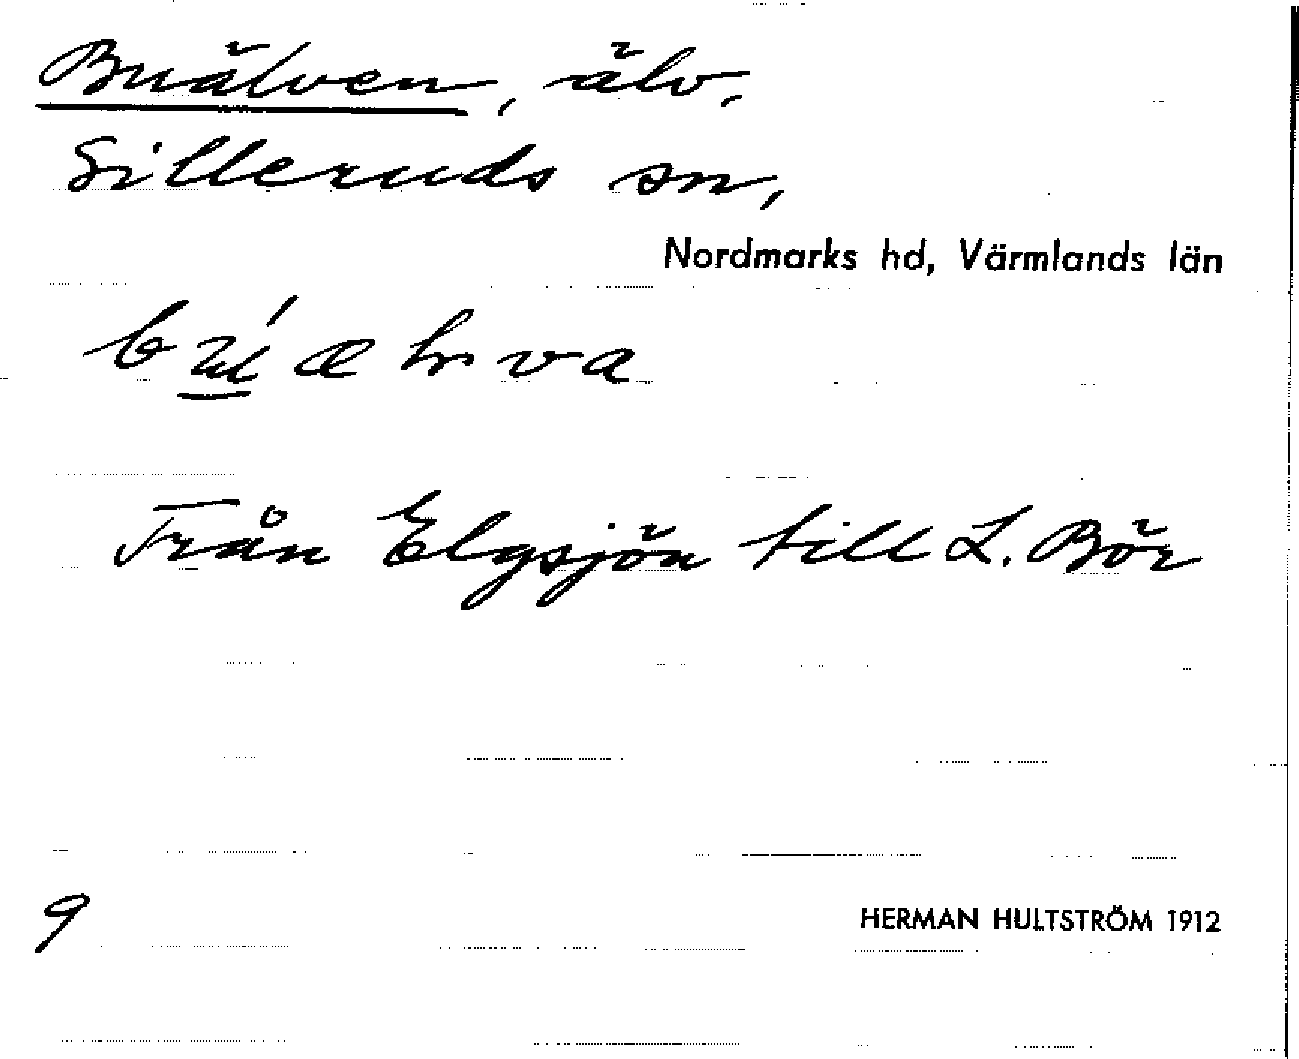 Buälven, älv,
Silleruds sn,
Nordmarks hd, Värmlands län
Från Elgsjön till L. Bör
9
HERMAN HULTSTRÖM 1912